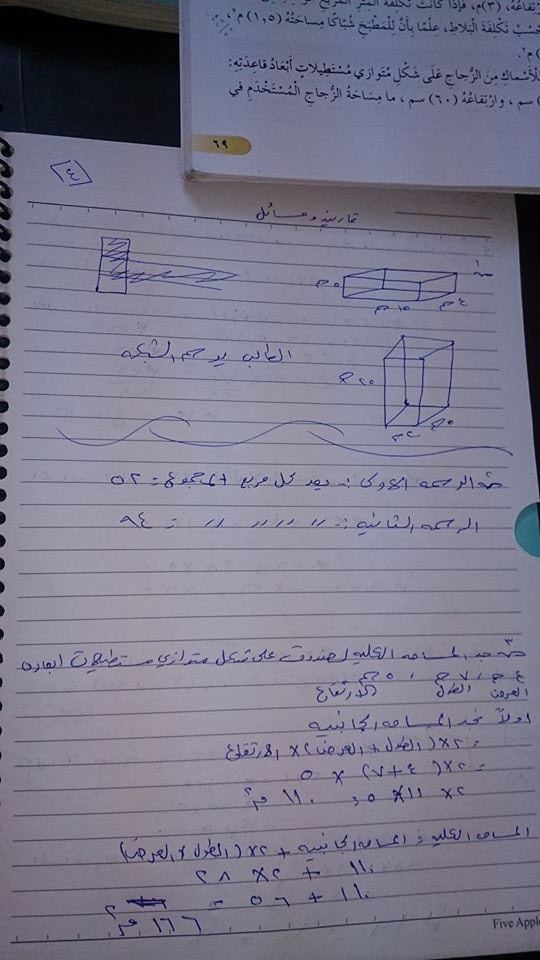 ارتفاعُهُ، (٣)م، فإذا كانت تكلفة المتر المربع
احْسُبْ تَكْلفَةَ البَلاطِ، عِلْمًا بِأَنَّ لِلْمَطْبَخِ شُبّاكًا مِسَاحَتُهُ (١,٥) م٢،
) م٢.
الْأسماكِ مِنَ الزُّجاجِ عَلَى شَكْلِ مُتَوازي مُسْتَطيلاتٍ أَبْعادُ قاعِدَتِهِ:
) سم ، وارْتِفاعُهُ (٦٠) سم ، ما مِسَاحَةُ الزُّجاجِ الْمُسْتَخْدَمِ في
٦٩
٤
تمارين ومسائل
س١
٥م
١٥م
٤م
الطالب يرسم الشبكة
٢٠م
٤م
٥م
الرسمه الاولى :- يعد كل مربع المجموع = ٥٢
الرسمة الثانيه :- // // // // = ٩٤
س٣ جد المساحه الكليه لصندوق على شكل متوازي مستطيلات ابعاده
٤م ، ٧م ، ٥م
العرض الطول الارتفاع
اولاً نجد المساحه الجانبيه
= ٢×(الطول + العرض) × الارتفاع
= ٢×(٤+٧) × ٥
٢× ١١× ٥ = ١١٠ م٢
المساحه الكليه = المساحه الجانبيه + ٢×(الطول × العرض)
١١٠ + ٢× ٢٨
١١٠ + ٥٦ =
١٦٦ م٢
Five Apple